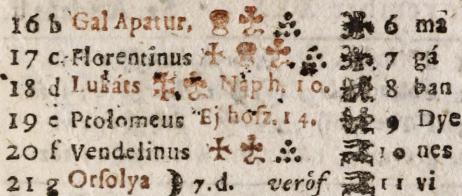 16 b Gal Apatur, verö 6 ma
17 c Florentinus 7 gá
18 d Lukáts Nap h. 10. 8 ban
19 e Ptolomeus Ej hosz. 14. 9 Dye
20 f Vendelinus 10 nes
21 g Orsolya 7.d. veröf 11 vi